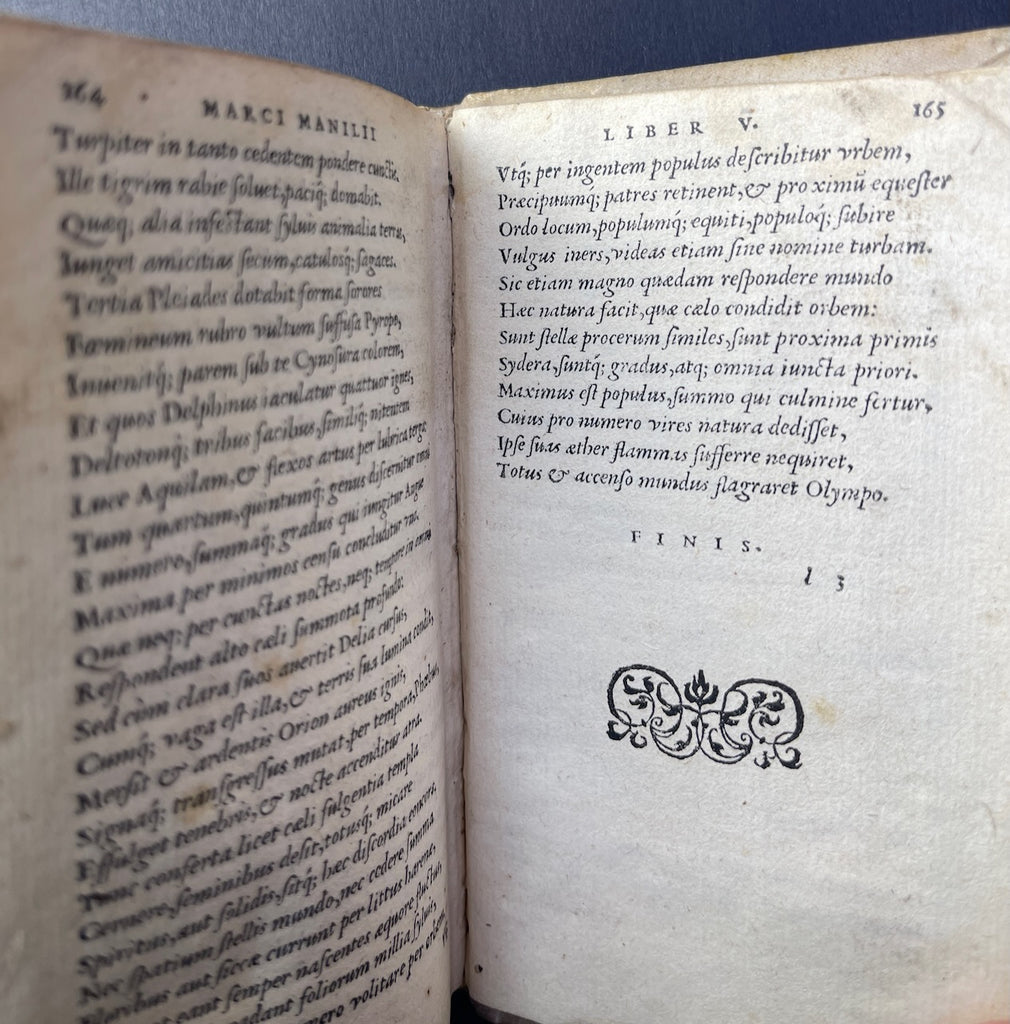 164
MARCI MANILII
Turpiter in tanto cedentem pondere cunctis,
Ille tigrim rabie ſoluet, paciq́; domabit.
Quæq; alia infeſtant ſyluis animalia terras,
Iunget amicitias ſecum, catuloſq́; ſagaces.
Tertia Pleiades dotabit forma ſorores
Fœmineum rubro vultum ſuffuſa Pyropo,
Inuenitq́; parem ſub te Cynoſura colorem,
Et quos Delphinus iaculatur quattuor ignes,
Deltotonq́; tribus facibus, ſimiliq́; nitentem
Luce Aquilam, & flexos artus per lubrica terga
Tum quartum, quintumq́; genus diſcernitur
E numero, ſummaq́; gradus qui iungitur
Maxima per minimos cenſu concluditur
Quæ neq; per cunctas noctes, neq; tempore in
Reſpondent alto cæli ſummota profundo:
Sed cùm clara ſuos auertit Delia curſus,
Cumq́; vaga eſt illa, & terris ſua lumina condit,
Merſit & ardentis Orion aureus ignis,
Signaq́; tranſgreſſus mutat per tempora, Phœbus,
Effulget tenebris, & nocte accenditur atra.
Tunc conferta licet cæli fulgentia templa
Cernere, ſeminibus deſit, totuſq́; micare
Spiritus, aut ſolidis, ſitq́; hæc diſcordia concors,
Nec ſpatium ſtellis mundo, nec cedere ſumma
Floribus aut ſiccæ currunt per littus harenæ,
eant ſemper naſcentes æquore fluctus,
adant foliorum millia ſyluis,
mero volitare per orbem
165
LIBER V.
Vtq́; per ingentem populus deſcribitur vrbem,
Præcipuumq́; patres retinent, & proximū equeſter
Ordo locum, populumq́; equiti, populoq́; ſubire
Vulgus iners, videas etiam ſine nomine turbam.
Sic etiam magno quædam reſpondere mundo
Hæc natura facit, quæ cælo condidit orbem:
Sunt ſtellæ procerum ſimiles, ſunt proxima primis
Sydera, ſuntq́; gradus, atq; omnia iuncta priori.
Maximus eſt populus, ſummo qui culmine fertur,
Cuius pro numero vires natura dediſſet,
Ipſe ſuas æther flammas ſufferre nequiret,
Totus & accenſo mundus flagraret Olympo.
FINIS.
l 3